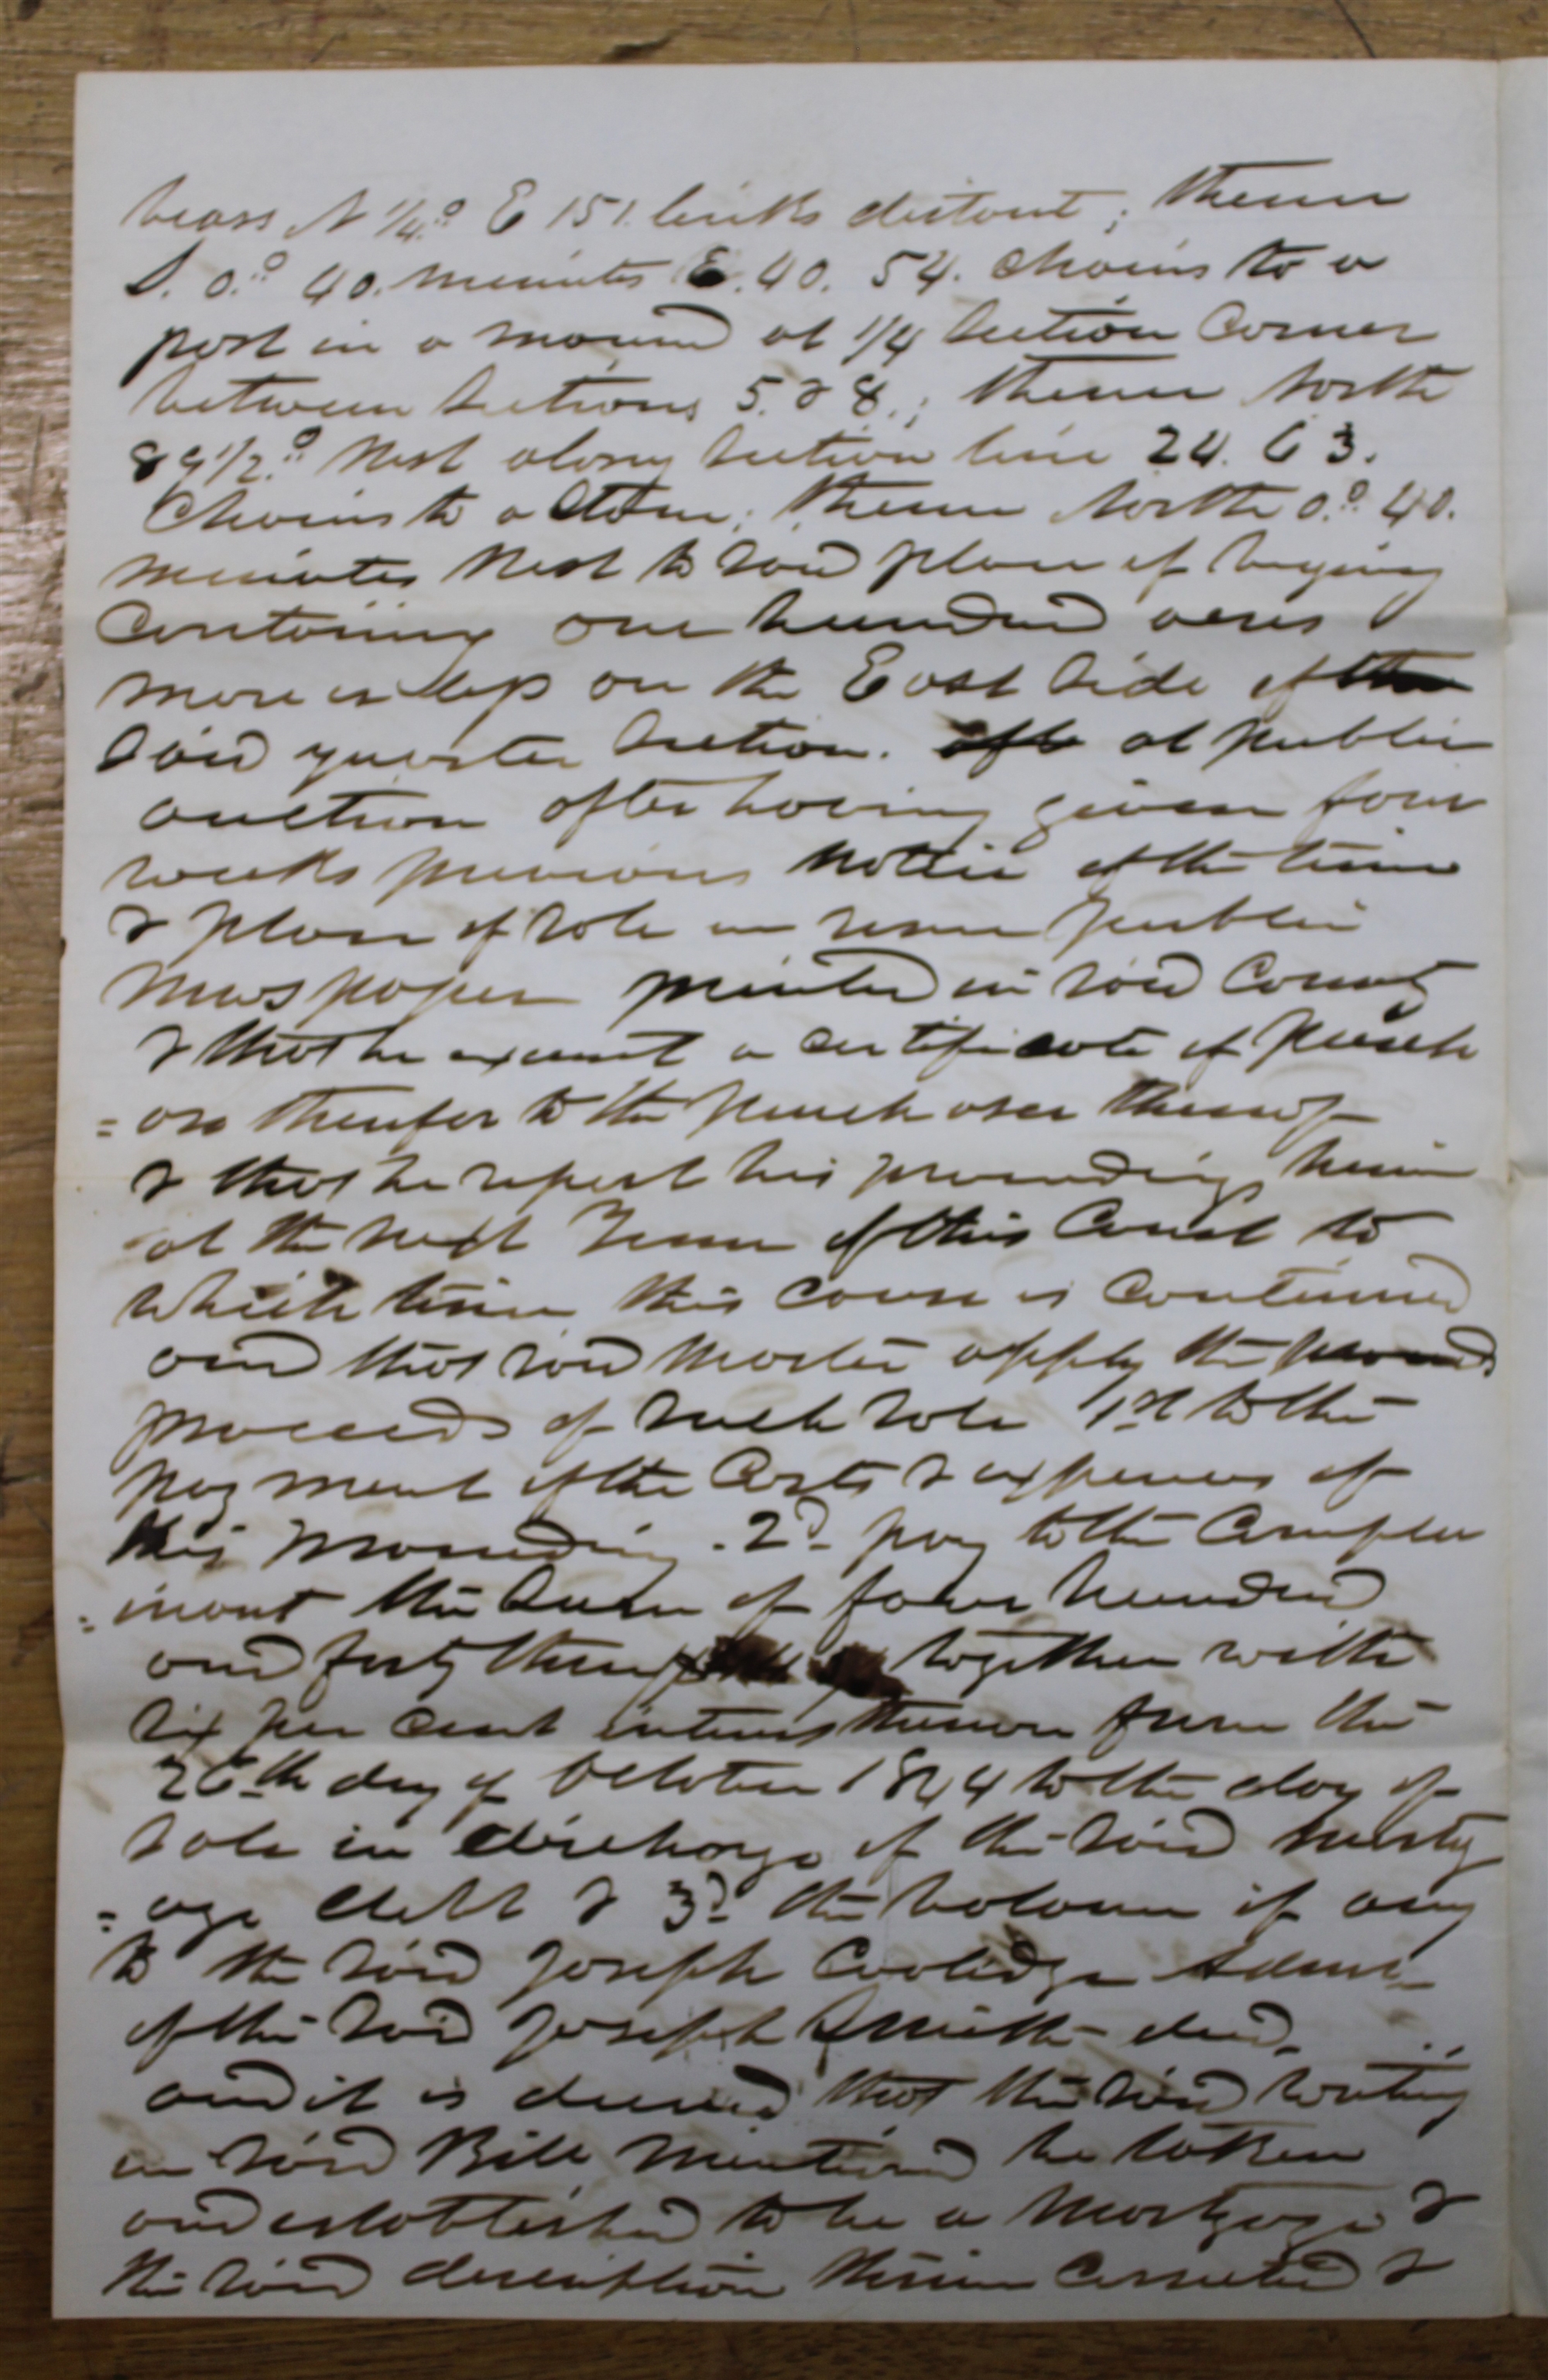 bears N 1/4.° E 151. links distant; thence
S. 0.° 40. minutes E. 40. 54. chains to a
post in a mound at 1/4 Section Corner
between Sections 5. & 8.; thence North
89 1/2.° West along Section line 24. 63.
Chains to a Stone; thence North 0.° 40.
minutes West to said place of begining
Containing one hundred acres
more or less on the East Side of the
Said quarter Section. aft at public
auction after having given four
weeks previous notice of the time
& place of sale in some public
news paper printed in said County
& that he execute a certificate of purch
= ase therefor to the purchaser thereof
& that he report his proceedings herein
at the next Term of this Court to
which time this cause is Continued
and that said Master apply the
proceeds of such sale 1st to the
payment of the Costs & expenses of
this proceeding. 2d pay to the Compla
= inant the Sum of four hundred
and forty three together with
six per cent interest thereon from the
26th day of October 1844 to the day of
sale in discharge of the said mortg
= age debt & 3d the balance if any
to the said Joseph Coolidge Admr.
of the said Joseph Smith decd.
and it is decreed that the said writing
in said Bill mentioned be taken
and established to be a Mortgage &
the said description therein corrected &